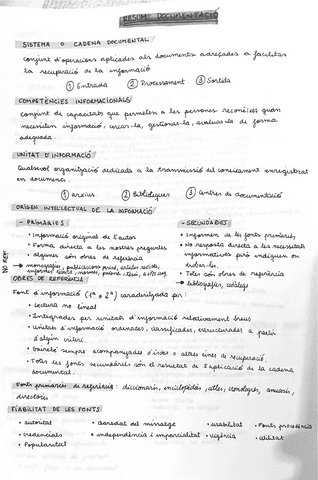 RESUM DOCUMENTACIÓ
SISTEMA O CADENA DOCUMENTAL
conjunt d'operacions aplicades als documents adreçades a facilitar
la recuperació de la informació
① Entrada ② Processament ③ Sortida
COMPETÈNCIES INFORMACIONALS
conjunt de capacitats que permeten a les persones reconèixer quan
necessiten informació, cercar-la, gestionar-la, avaluar-la de forma
adequada.
UNITAT D'INFORMACIÓ
Qualsevol organització dedicada a la transmissió del coneixement enregistrat
en documents.
① arxius ② Biblioteques ③ Centres de documentació
ORIGEN INTEL·LECTUAL DE LA INFORMACIÓ
- PRIMÀRIES
• Informació original de l'autor
• Forma directa a les nostres preguntes
• algunes són obres de referència
→ monografies, publicacions
- SECUNDÀRIES
• Informen de les fonts primàries
• No resposta directa a les necessitats
informatives però indiquen on
trobar-les.
• Totes són obres de referència
→ bibliografies, catàlegs
NO REF
OBRES DE REFERÈNCIA
Font d'informació (1ª o 2ª) caracteritzada per:
• Lectura no lineal
• Integrades per unitats d'informació relativament breus
• unitats d'informació ordenades, classificades, estructurades a partir
d'algun criteri
• sempre acompanyades d'índex o altres eines de recuperació.
• Totes les fonts secundàries són el resultat de l'aplicació de la cadena
documental.
Fonts primàries de referència: diccionaris, enciclopèdies, atles, cronologies, anuaris,
directoris
FIABILITAT DE LES FONTS
• autoritat • qualitat del missatge • usabilitat • Fonts procedència
• credencials • independència i imparcialitat • vigència • utilitat
• Popularitat